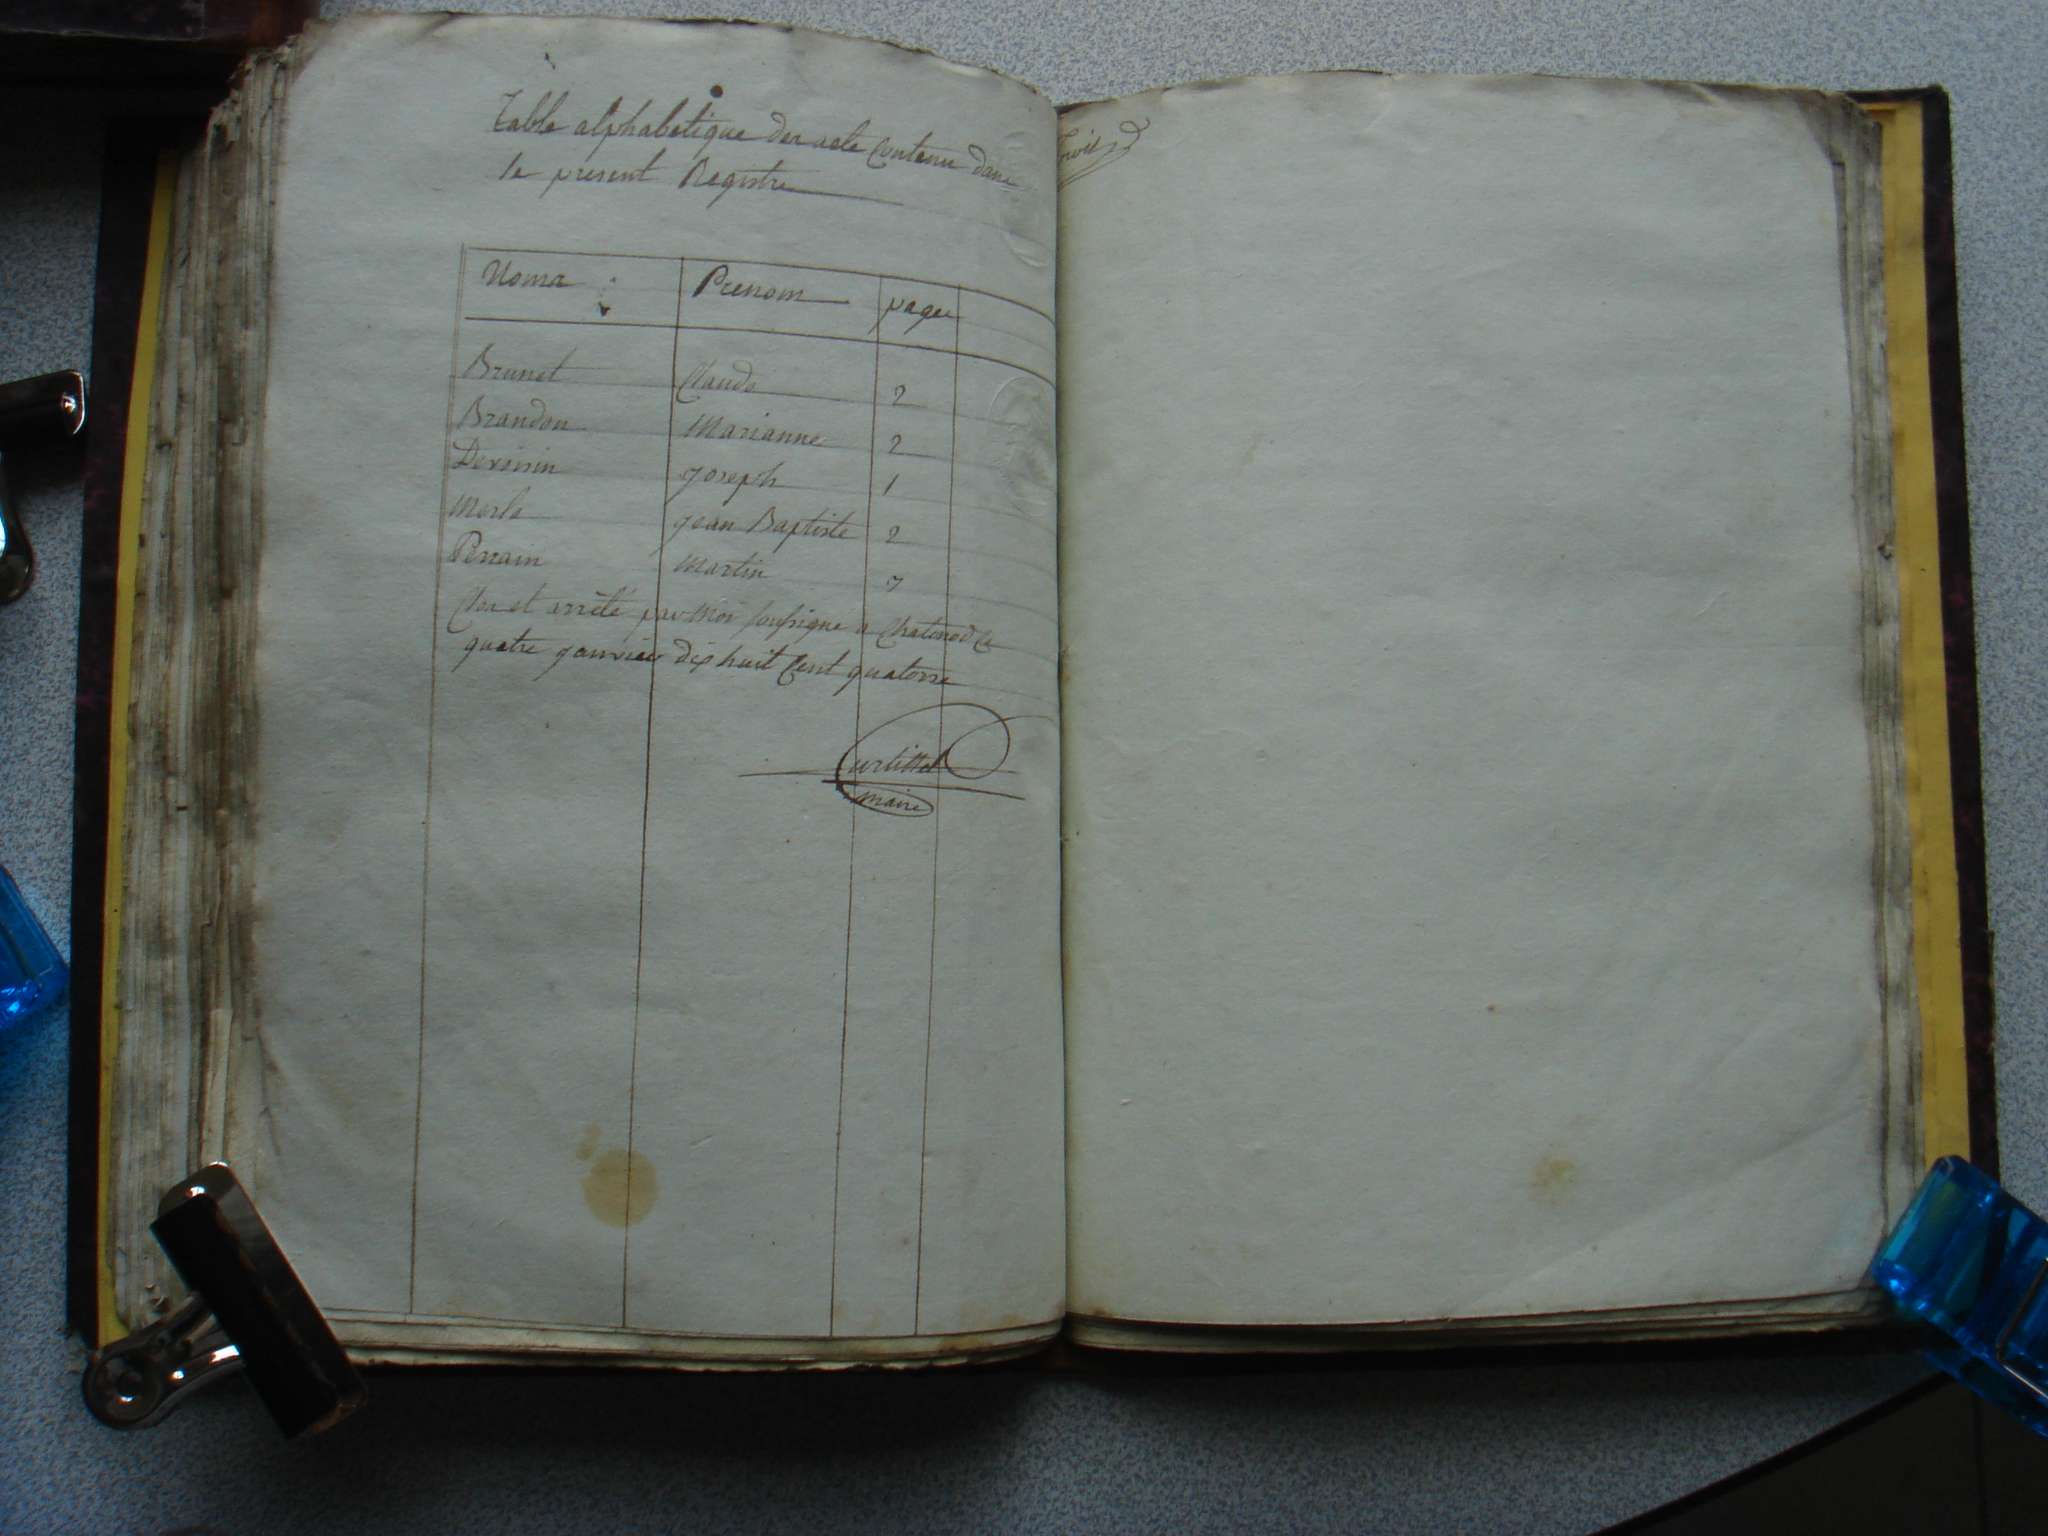 Table alphabetique des acte Contenu dans
le present Registre
Noms Prenom page
Brunet Claude 2
Brandon Marianne 2
Devoisin Joseph 1
Merle Jean Baptiste 2
Perrain Martin
Clos et arrêté par Moi soussigne a Chatenod le
quatre janvier dix huit Cent quatorse
maire